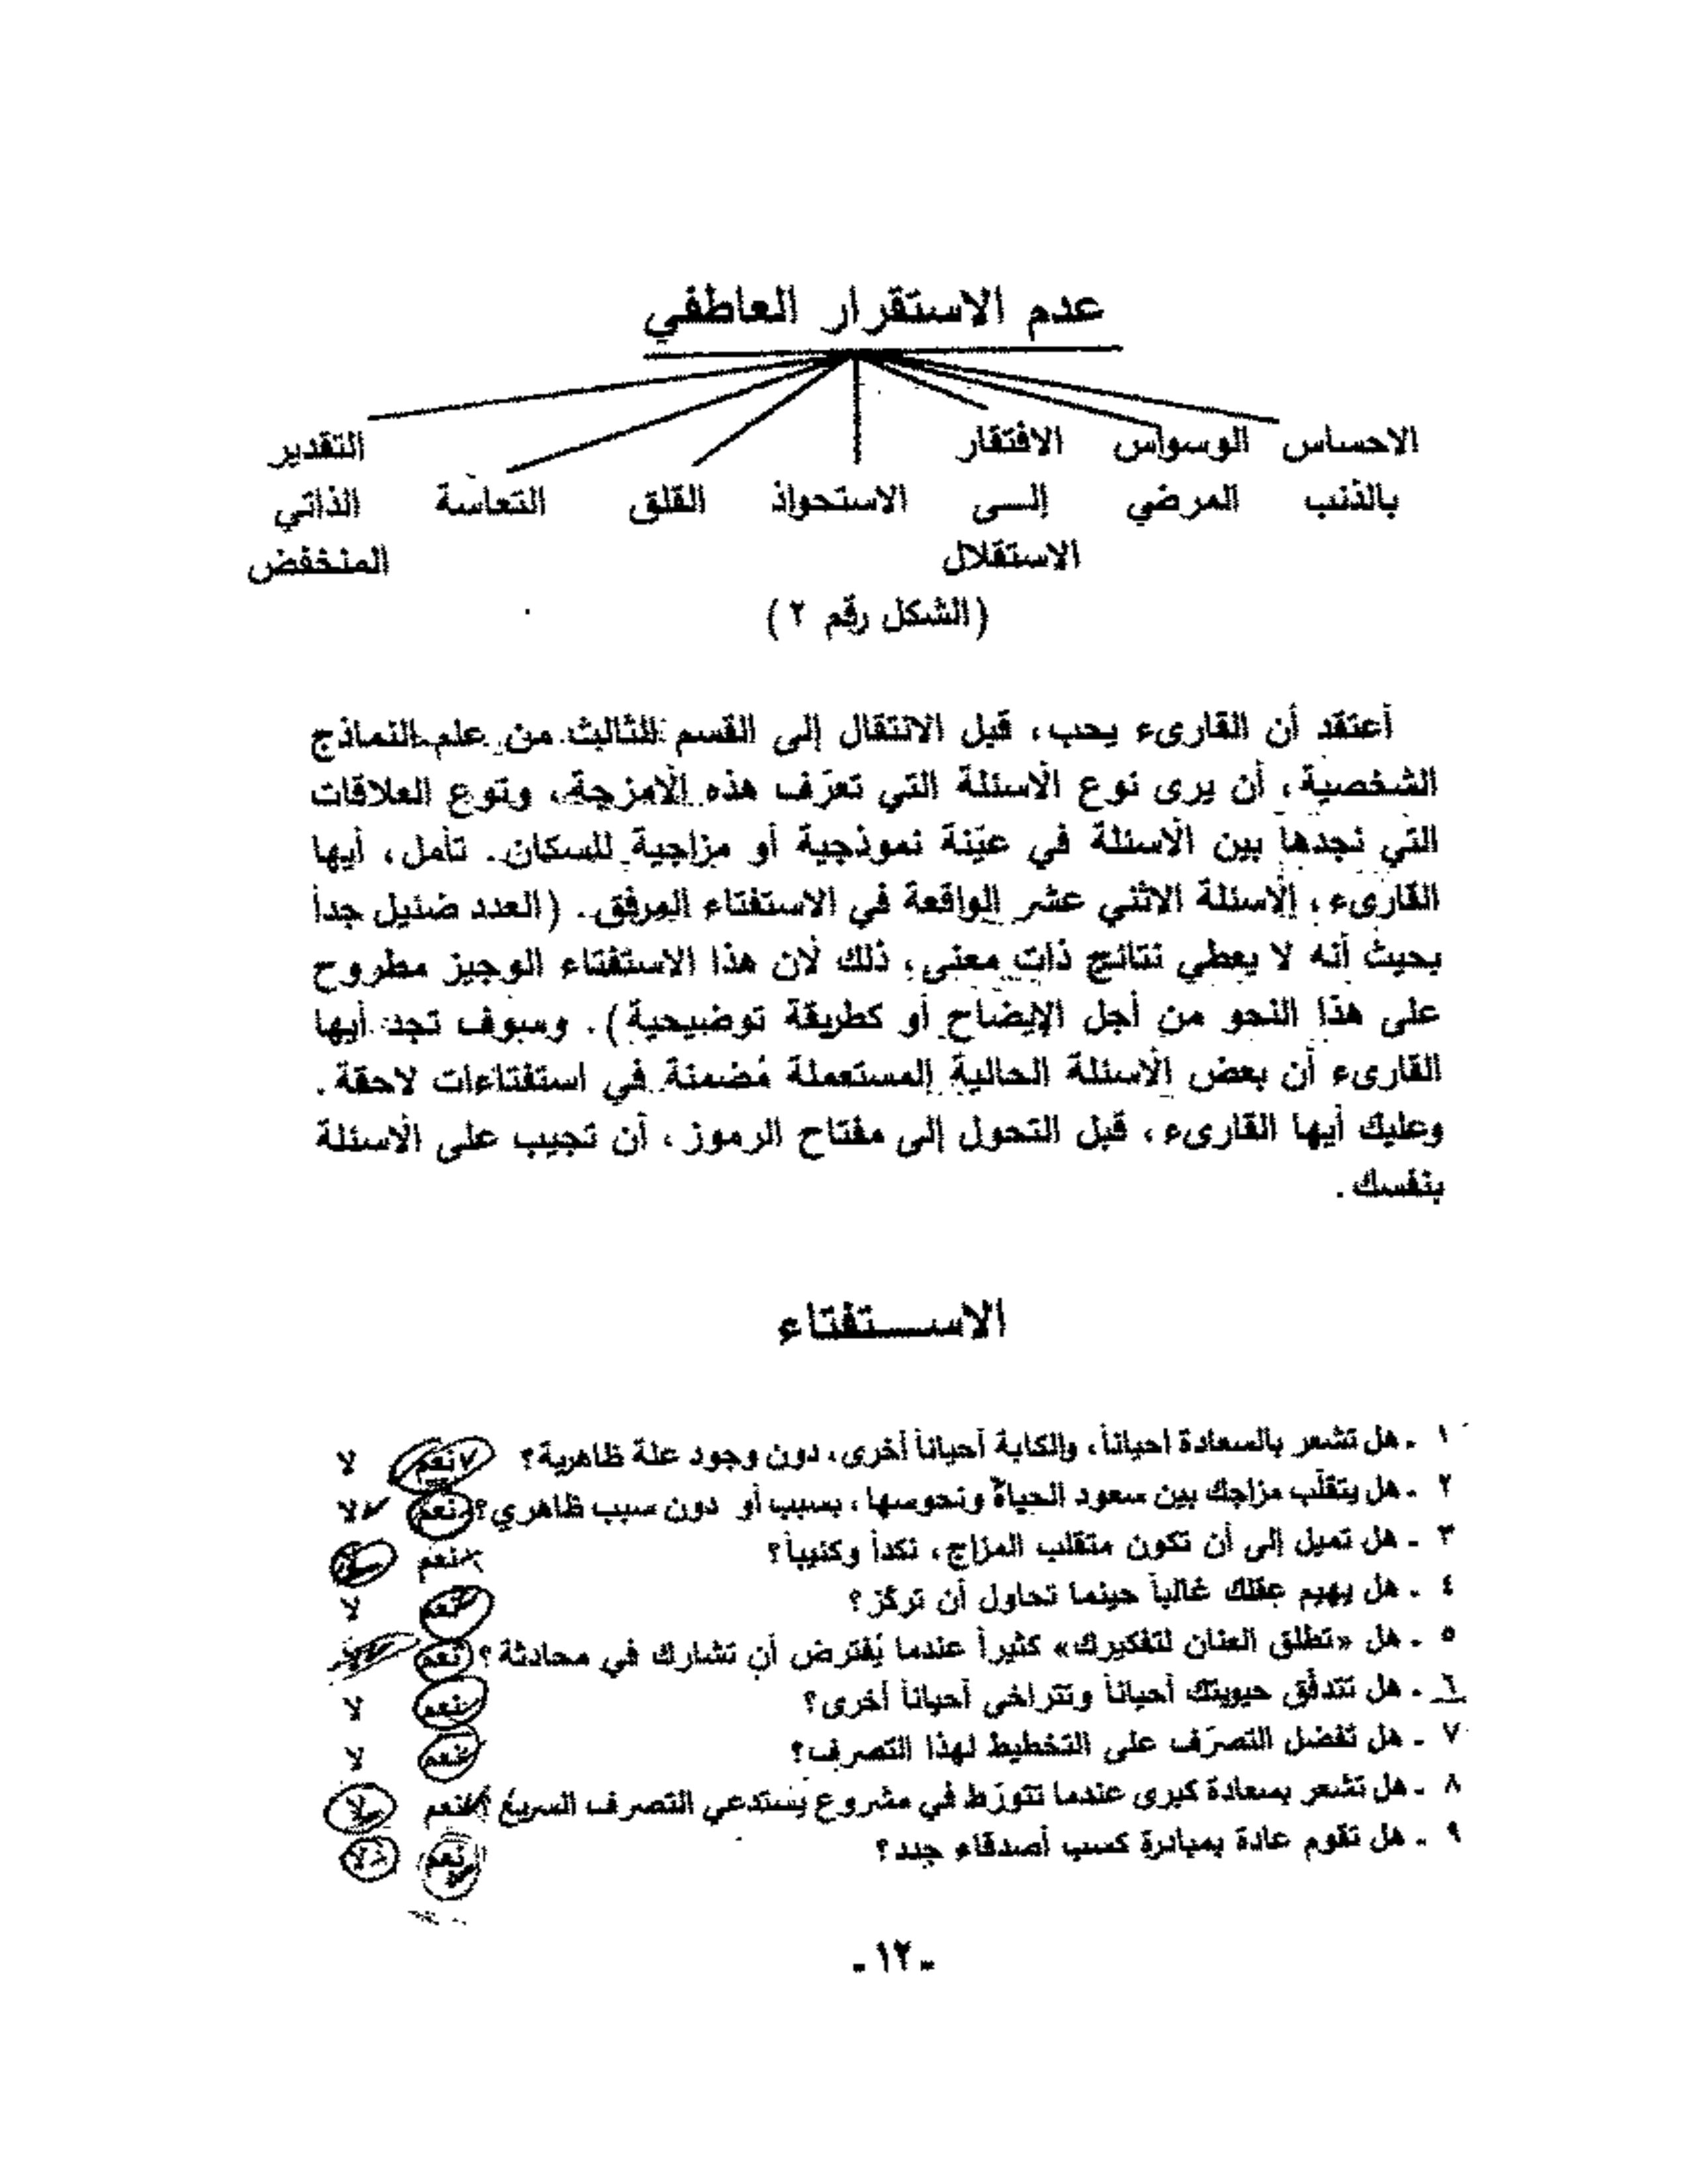 عدم الاستقرار العاطفي
الاحساس الوسواس الافتقار التقدير
بالذنب المرضي إلى الاستحواذ القلق التعاسة الذاتي
الاستقلال المنخفض
(الشكل رقم ٢)
أعتقد أن القارىء يحب، قبل الانتقال إلى القسم الثالث من علم النماذج
الشخصية، أن يرى نوع الأسئلة التي تعرّف هذه الأمزجة، ونوع العلاقات
التي نجدها بين الأسئلة في عيّنة نموذجية أو مزاجية للسكان. تأمل، أيها
القارىء، الأسئلة الاثني عشر الواقعة في الاستفتاء المرفق. (العدد ضئيل جداً
بحيث أنه لا يعطي نتائج ذات معنى، ذلك لأن هذا الاستفتاء الوجيز مطروح
على هذا النحو من أجل الإيضاح أو كطريقة توضيحية). وسوف تجد أيها
القارىء أن بعض الأسئلة الحالية المستعملة مُضمنة في استفتاءات لاحقة.
وعليك أيها القارىء، قبل التحول إلى مفتاح الرموز، أن تجيب على الأسئلة
بنفسك.
الاستفتاء
١ - هل تشعر بالسعادة احياناً، والكابة أحياناً أخرى، دون وجود علة ظاهرية؟ نعم لا
٢ - هل يتقلّب مزاجك بين سعود الحياة ونحوسها، بسبب أو دون سبب ظاهري؟ نعم لا
٣ - هل تميل إلى أن تكون متقلب المزاج، نكداً وكئيباً؟ نعم لا
٤ - هل يهيم عقلك غالباً حينما تحاول أن تركّز؟ نعم لا
٥ - هل «تطلق العنان لتفكيرك» كثيراً عندما يُفترض أن تشارك في محادثة؟ نعم لا
٦ - هل تتدفّق حيويتك أحياناً وتتراخى أحياناً أخرى؟ نعم لا
٧ - هل تفضل التصرّف على التخطيط لهذا التصرف؟ نعم لا
٨ - هل تشعر بسعادة كبرى عندما تتورّط في مشروع يَستدعي التصرف السريع؟ نعم لا
٩ - هل تقوم عادة بمبادرة كسب أصدقاء جدد؟ نعم لا
- ١٢ -